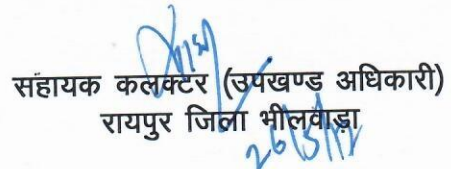 सहायक कलक्टर (उपखण्ड अधिकारी)
रायपुर जिला भीलवाड़ा
26/5/12